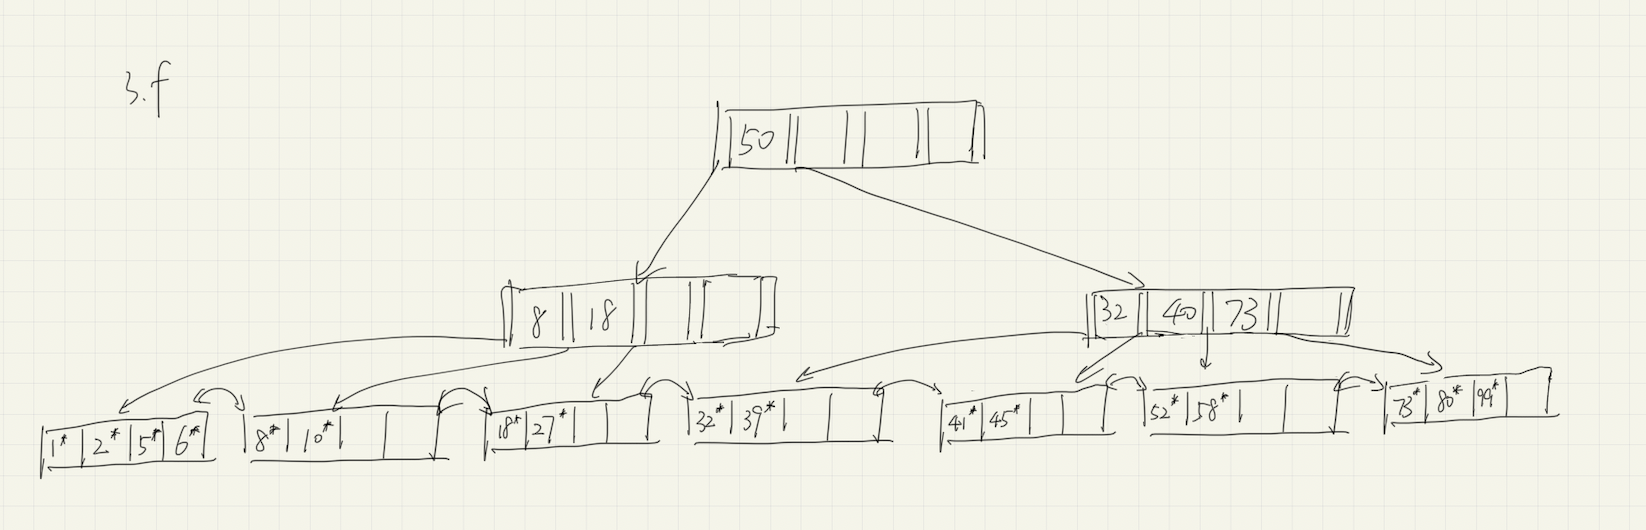 3.f
50
8 18
32 40 73
1* 2* 5* 6*
8* 10*
18* 27*
32* 39*
41* 45*
52* 58*
73* 80* 99*